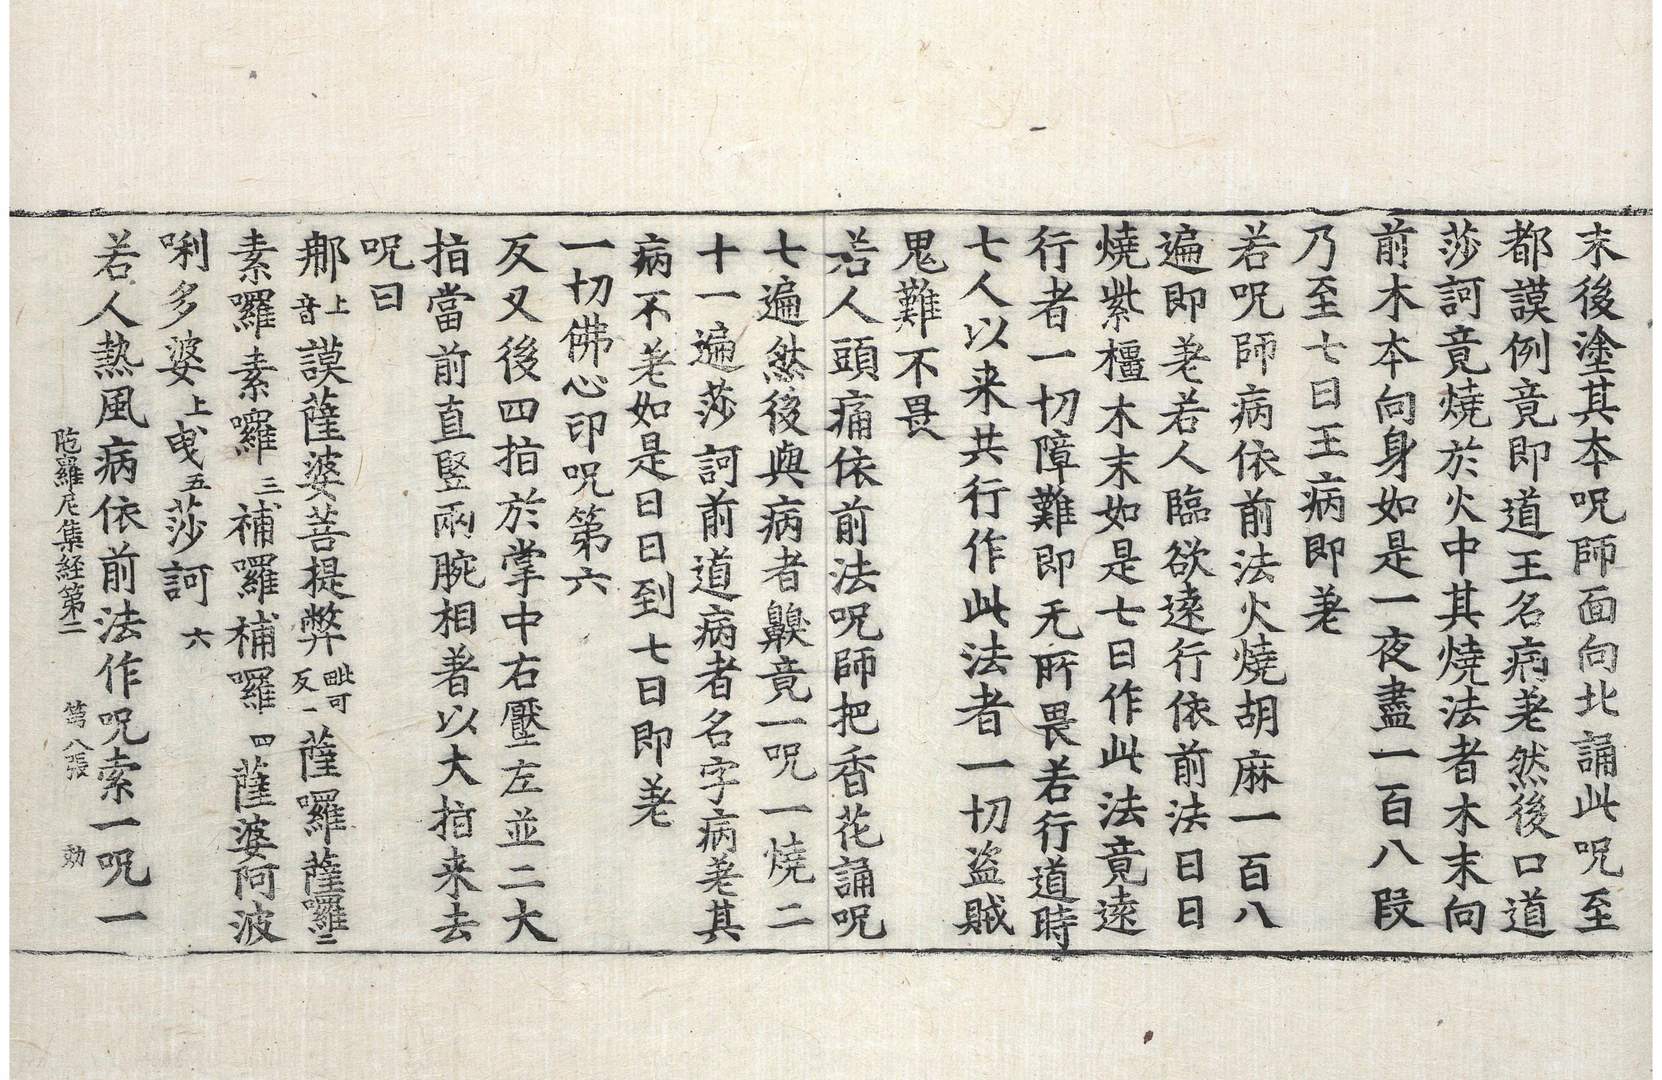 末後塗其本呪師面向北誦此呪至
都謨例竟即道王名病老然後口道
莎訶竟燒於火中其燒法者木末向
前木本向身如是一夜盡一百八段
乃至七日王病即老
若呪師病依前法火燒胡麻一百八
遍即老若人臨欲遠行依前法日日
燒紫橿木末如是七日作此法竟遠
行者一切障難即无所畏若行道時
七人以来共行作此法者一切盗賊
鬼難不畏
若人頭痛依前法呪師把香花誦呪
七遍然後與病者齅竟一呪一燒二
十一遍莎訶前道病者名字病老其
病不老如是日日到七日即老
一切佛心印呪第六
反叉後四指於掌中右壓左並二大
指當前直竪兩腕相著以大指来去
呪曰
那上音謨薩婆菩提弊毗可反一薩囉薩囉二
素囉素囉三補囉補囉四薩婆阿波
唎多婆上曳五莎訶六
若人熱風病依前法作呪索一呪一
陁羅尼集經第二 第八張 勑